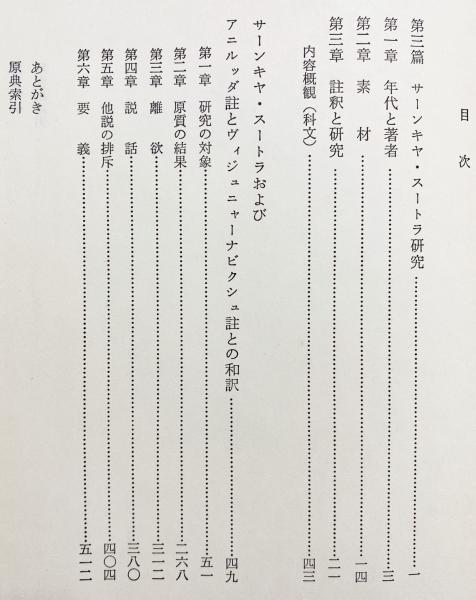 目次
第三篇 サーンキヤ・スートラ研究……一
第一章 年代と著者……三
第二章 素材……一四
第三章 註釈と研究……二一
内容概観（科文）……四三
サーンキヤ・スートラおよび
アニルッダ註とヴィジュニャーナビクシュ註との和訳……四九
第一章 研究の対象……五一
第二章 原質の結果……二六八
第三章 離欲……三一二
第四章 説話……三八〇
第五章 他説の排斥……四〇四
第六章 要義……五一二
あとがき
原典索引